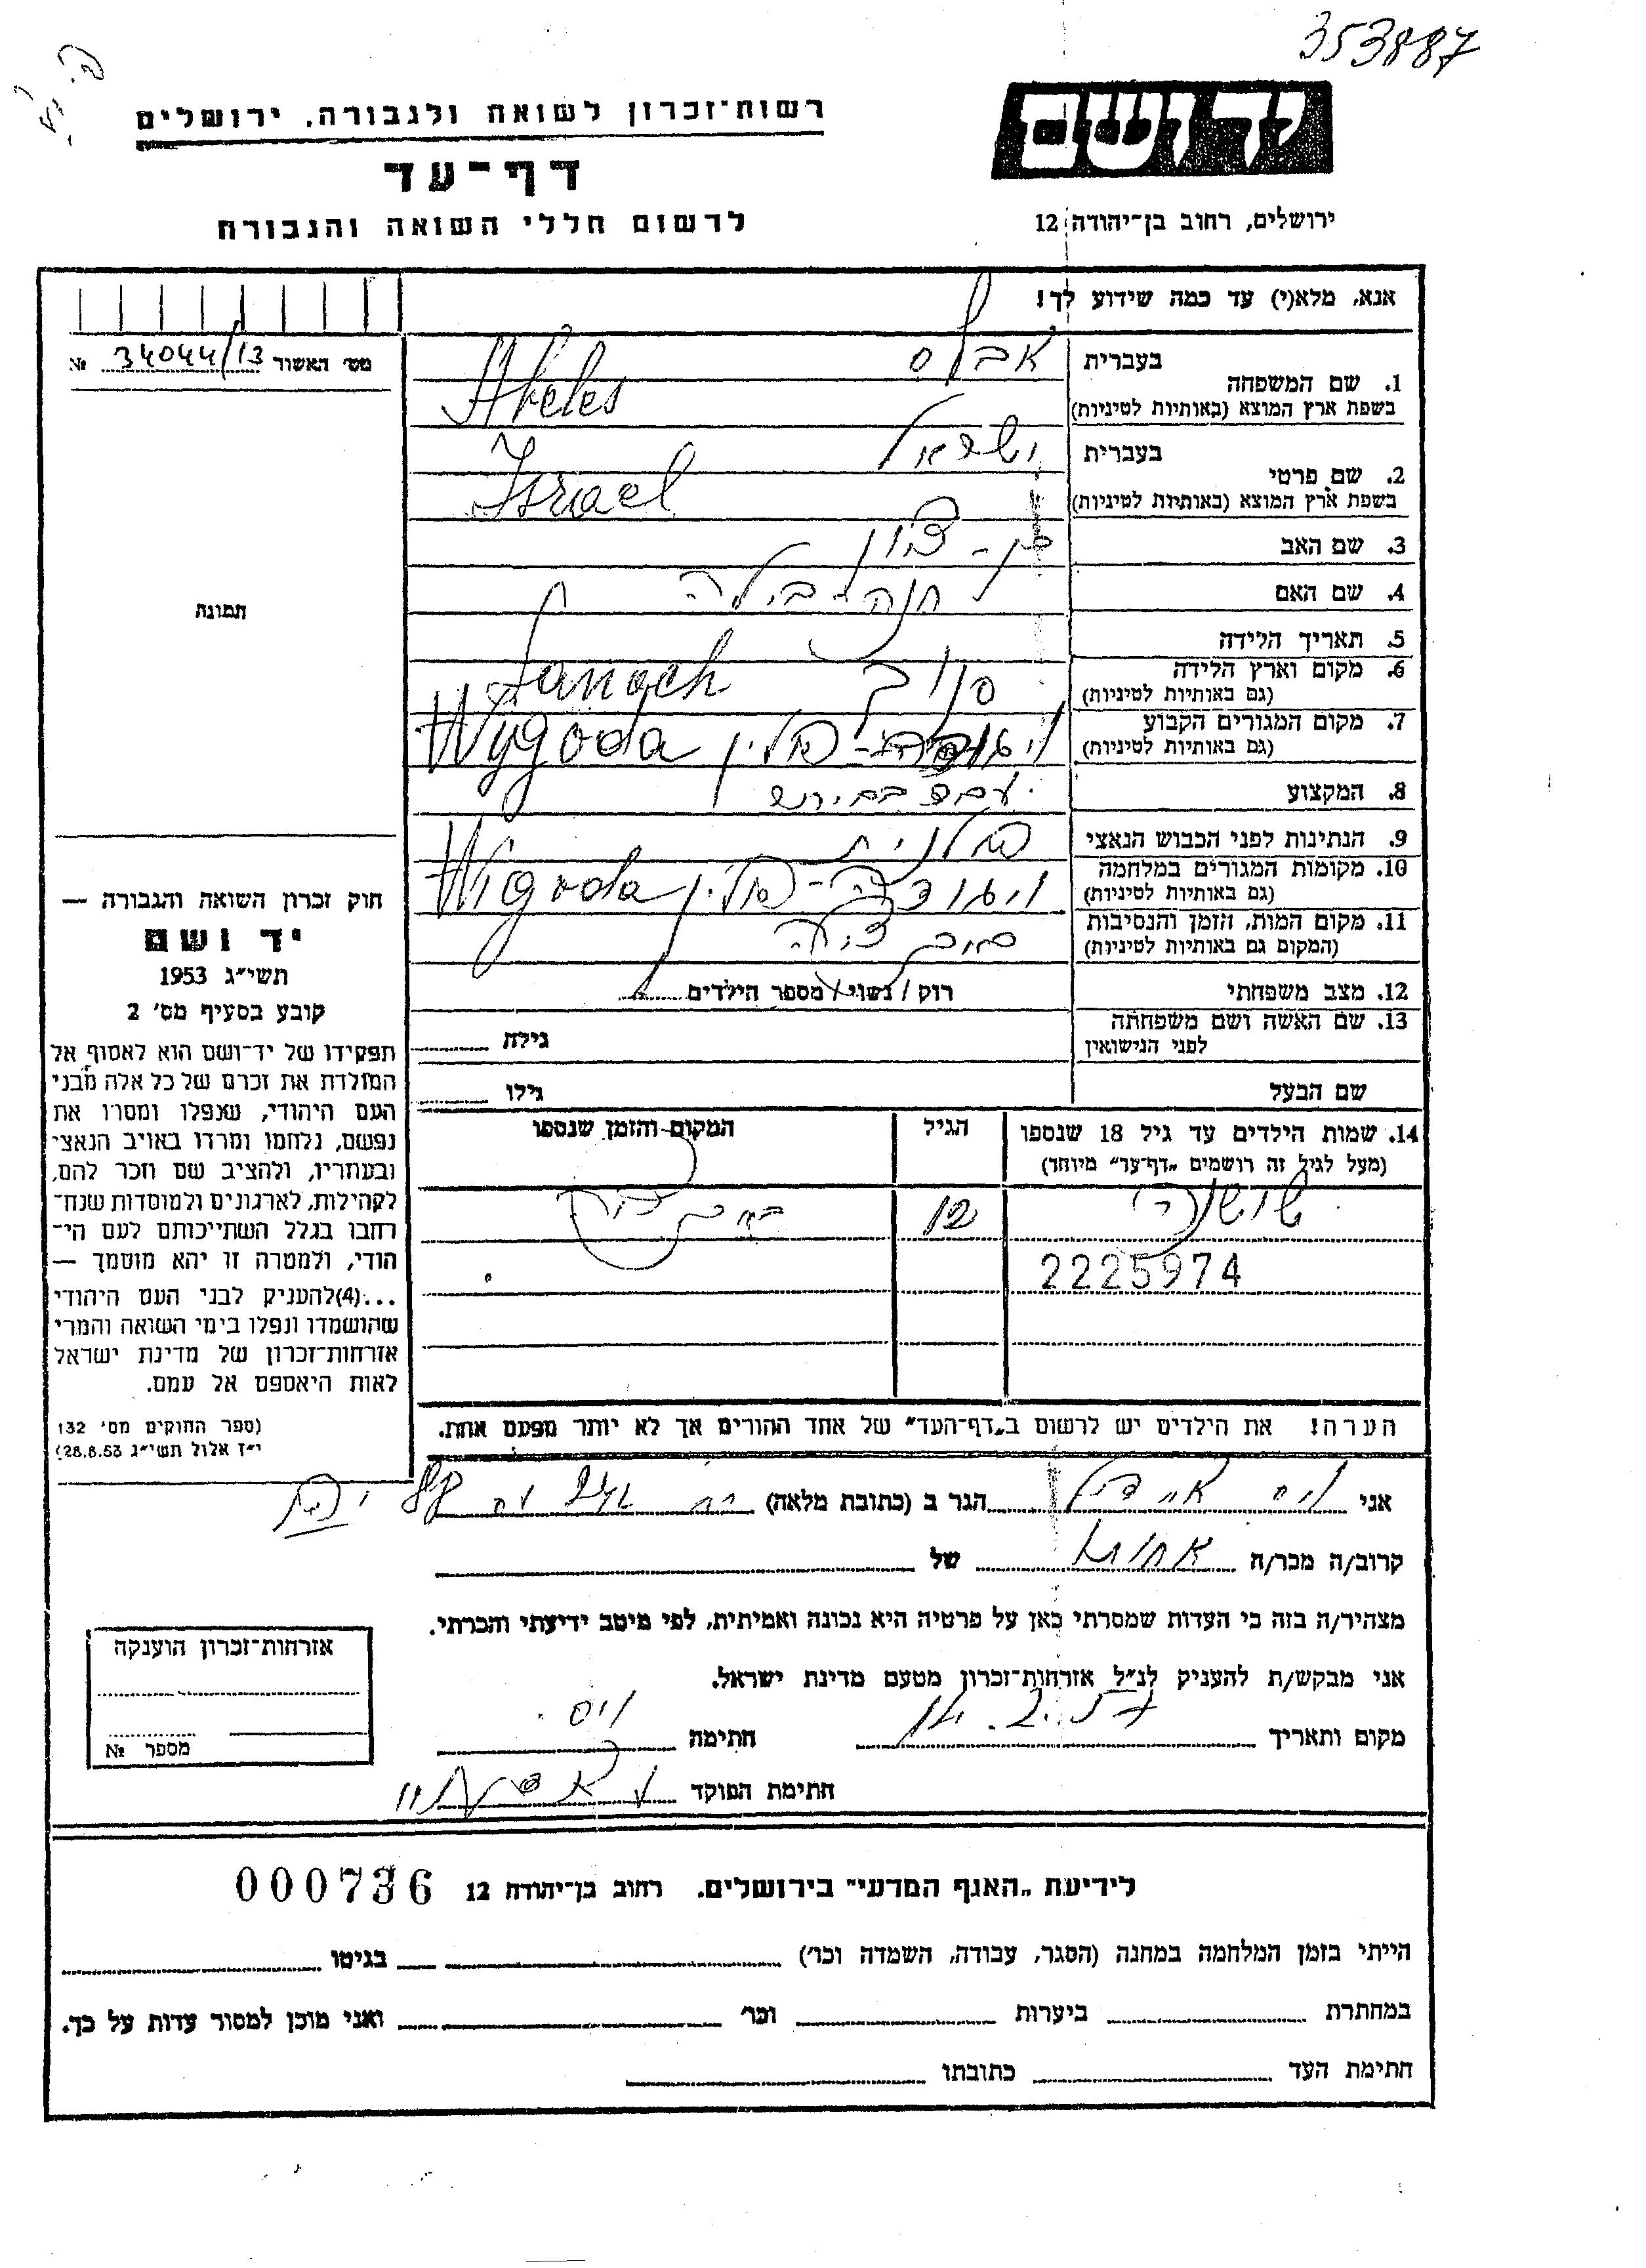 353887
יד ושם
רשות־זכרון לשואה ולגבורה, ירושלים
דף־עד
לרשום חללי השואה והגבורה
ירושלים, רחוב בן־יהודה 12
אנא, מלא(י) עד כמה שידוע לך!
מס׳ האשור 34044/13 №
1. שם המשפחה
בעברית אבלס
בשפת ארץ המוצא (באותיות לטיניות) Abeles
2. שם פרטי
בעברית ישראל
בשפת ארץ המוצא (באותיות לטיניות) Israel
3. שם האב בן-ציון
4. שם האם חנה בילה
5. תאריך הלידה
6. מקום וארץ הלידה
(גם באותיות לטיניות) Sanoch סנוק
7. מקום המגורים הקבוע
(גם באותיות לטיניות) Wygoda פולין
8. המקצוע
9. הנתינות לפני הכבוש הנאצי פולנית
10. מקומות המגורים במלחמה
(גם באותיות לטיניות) ויגודה-פולין Wigoda
11. מקום המות, הזמן והנסיבות
(המקום גם באותיות לטיניות)
12. מצב משפחתי רוק / נשוי / מספר הילדים
13. שם האשה ושם משפחתה
לפני הנישואין גילה
שם הבעל גילו
14. שמות הילדים עד גיל 18 שנספו הגיל המקום והזמן שנספו
(מעל לגיל זה רושמים „דף־עד" מיוחד)
שושנה 12
2225974
הערה! את הילדים יש לרשום ב„דף־העד" של אחד ההורים אך לא יותר מפעם אחת.
תמונה
חוק זכרון השואה והגבורה —
יד ושם
תשי״ג 1953
קובע בסעיף מס׳ 2
תפקידו של יד־ושם הוא לאסוף אל
המולדת את זכרם של כל אלה מבני
העם היהודי, שנפלו ומסרו את
נפשם, נלחמו ומרדו באויב הנאצי
ובעוזריו, ולהציב שם וזכר להם,
לקהילות, לארגונים ולמוסדות שנח־
רחבו בגלל השתייכותם לעם הי־
הודי, ולמטרה זו יהא מוסמך —
...(4)להעניק לבני העם היהודי
שהושמדו ונפלו בימי השואה והמרי
אזרחות־זכרון של מדינת ישראל
לאות היאספם אל עמם.
(ספר החוקים מס׳ 132
י״ז אלול תשי״ג 28.8.53)
אני הגר ב (כתובת מלאה)
קרוב/ה מכר/ה של
מצהיר/ה בזה כי העדות שמסרתי כאן על פרטיה היא נכונה ואמיתית, לפי מיטב ידיעתי והכרתי.
אני מבקש/ת להעניק לנ״ל אזרחות־זכרון מטעם מדינת ישראל.
מקום ותאריך חתימה ויס
חתימת הפוקד
אזרחות־זכרון הוענקה
מספר №
לידיעת „האגף המדעי" בירושלים. רחוב בן־יהודה 12 000736
הייתי בזמן המלחמה במחנה (הסגר, עבודה, השמדה וכו׳) בגיטו
במחתרת ביערות וכו׳ ואני מוכן למסור עדות על כך.
חתימת העד כתובתו